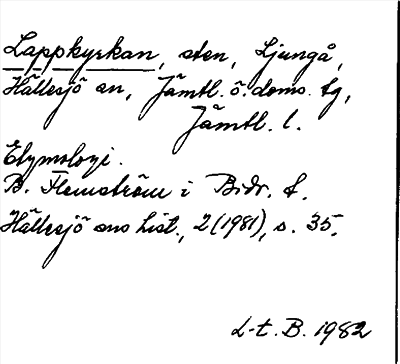 Lappkyrkan, sten, Ljungå,
Hällesjö sn, Jämtl. ö. doms. tg,
Jämtl. l.
Etymologi.
B. Flemström i Bidr. t.
Hällesjö sns hist., 2 (1981), s. 35.
L-t. B. 1982